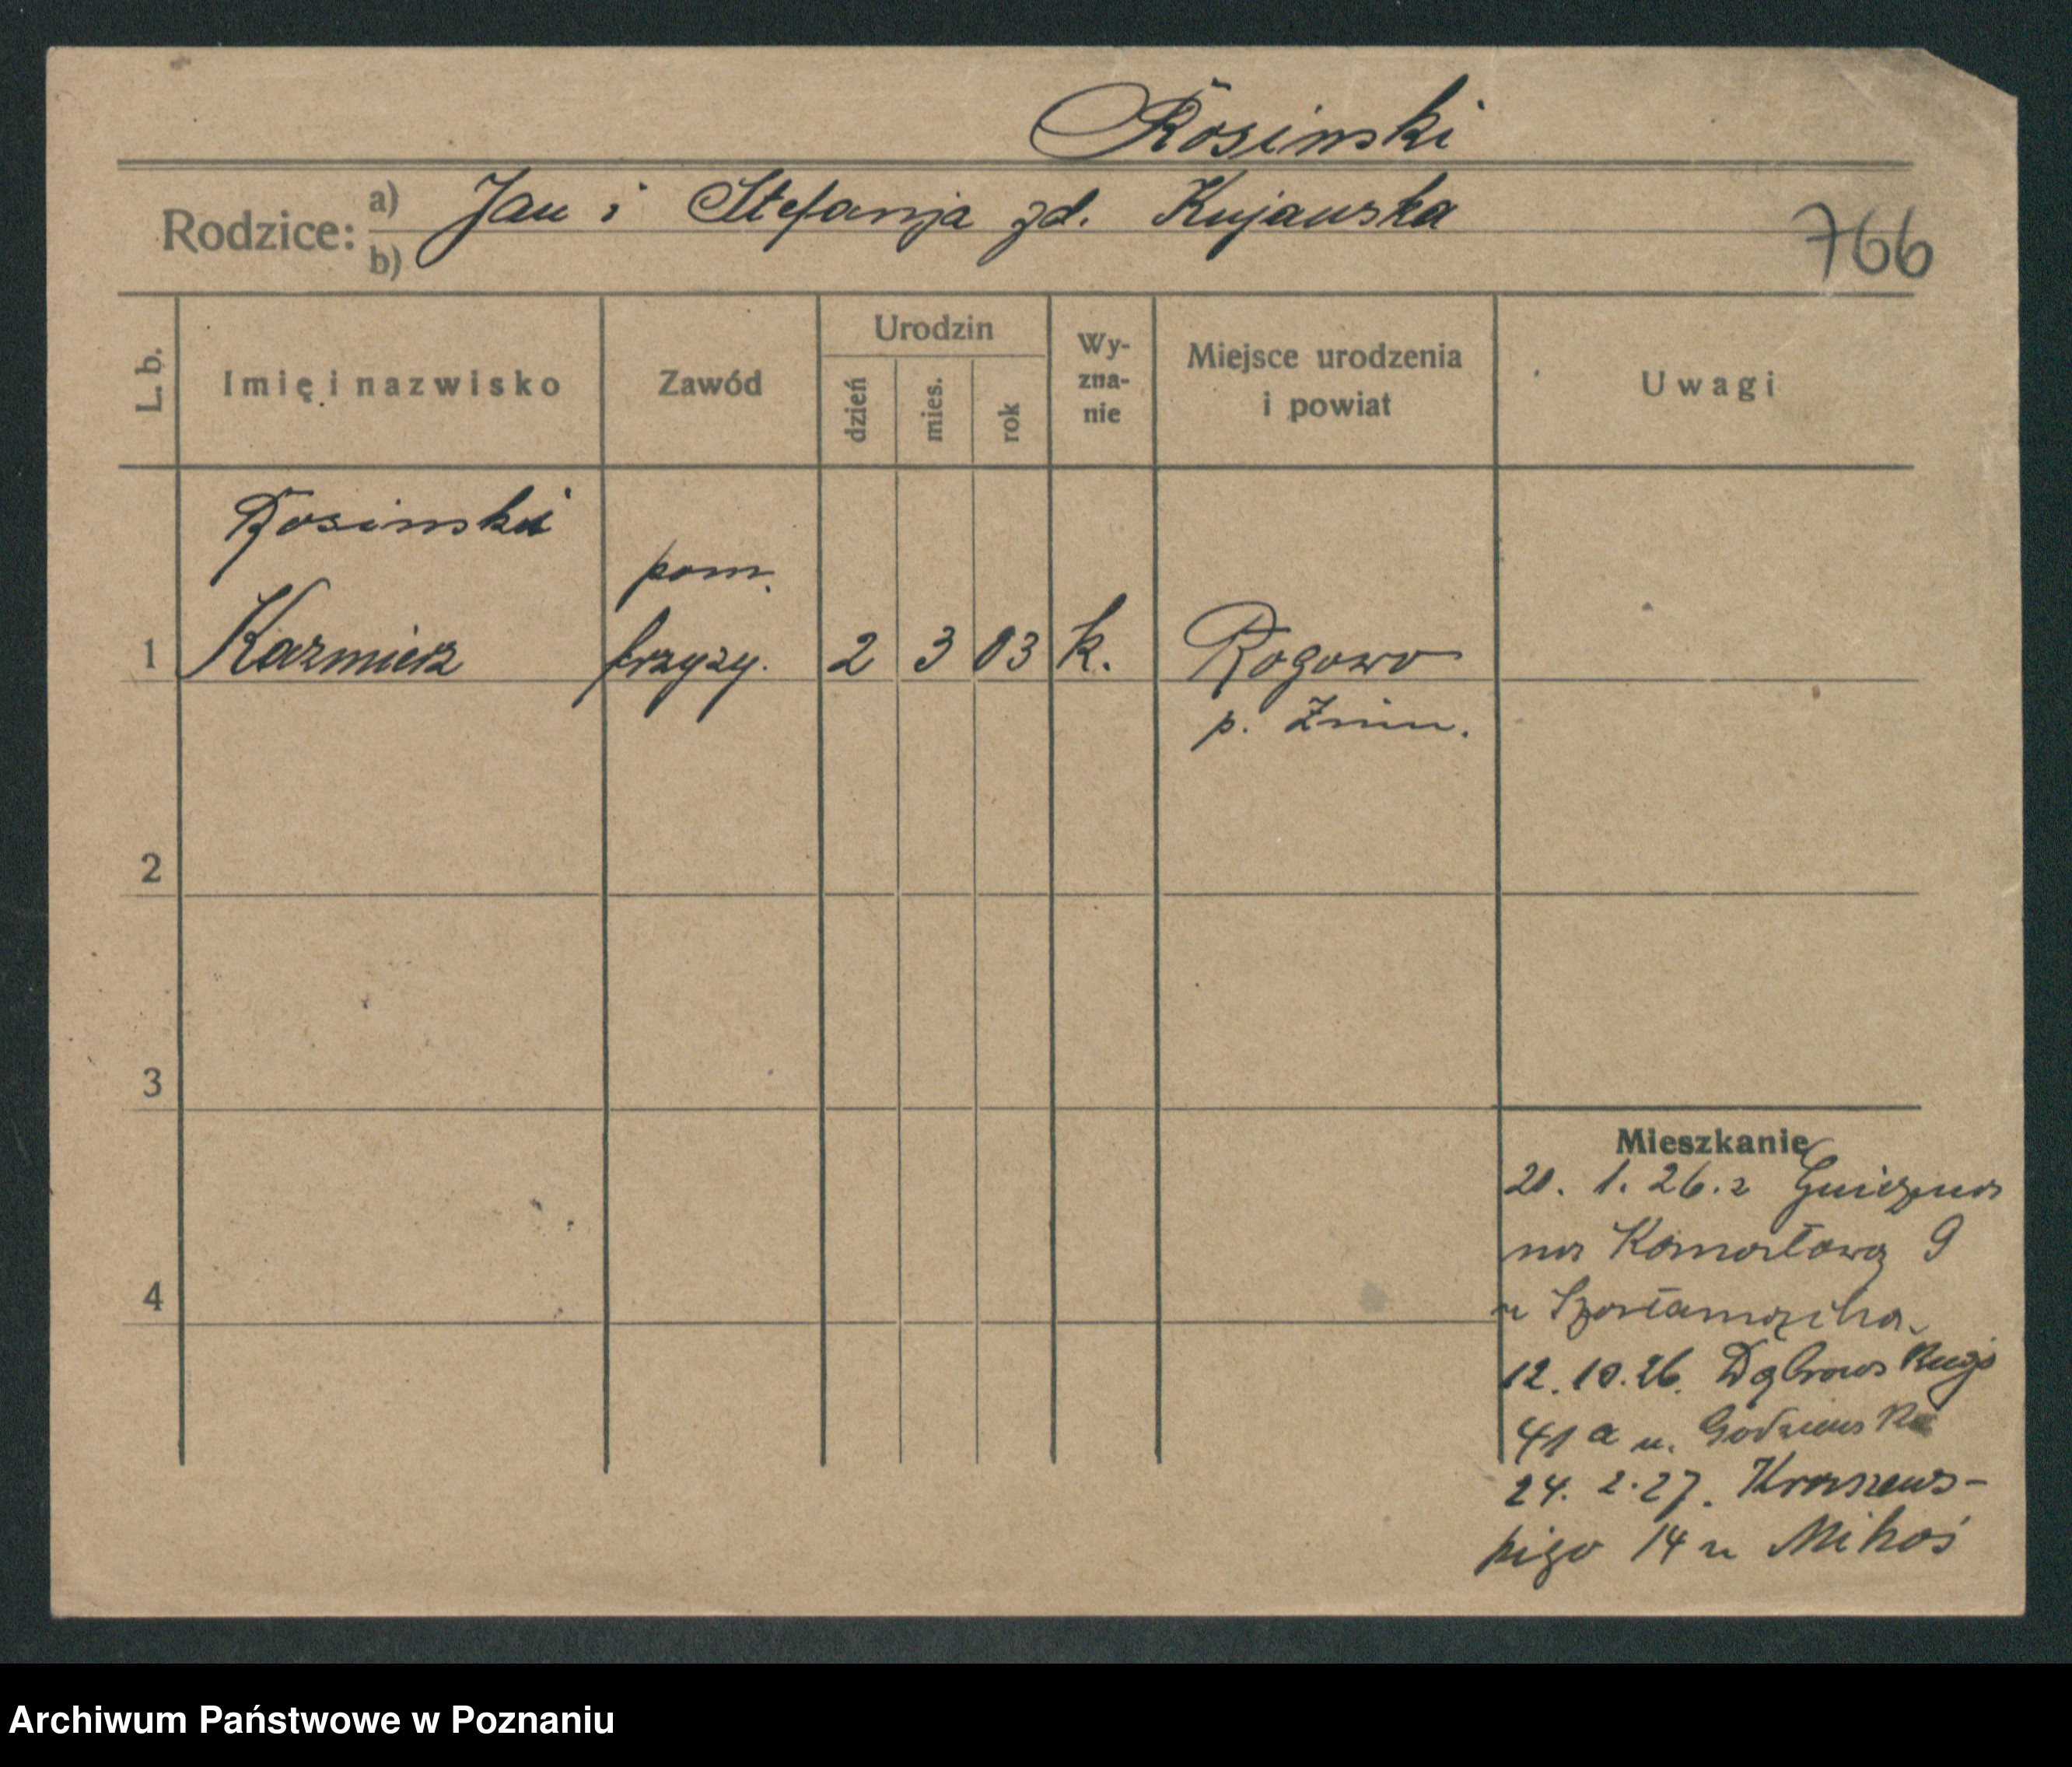 Rosinski
Rodzice: a) Jan i Stefanja zd. Kujawska
b)
766
L. b.
Imię i nazwisko
Zawód
Urodzin
dzień
mies.
rok
Wy-
zna-
nie
Miejsce urodzenia
i powiat
Uwagi
Rosinski
pom.
1 Kazmierz fryzy. 2 3 03 k. Rogowo
p. Żnin.
2
3
4
Mieszkanie
20. 1. 26. z Gniezna
na 9
u
12.10.26. Dąbrowskiego
41a u.
24. 2.27. Kraszews-
kiego 14 u Mikoś
Archiwum Państwowe w Poznaniu